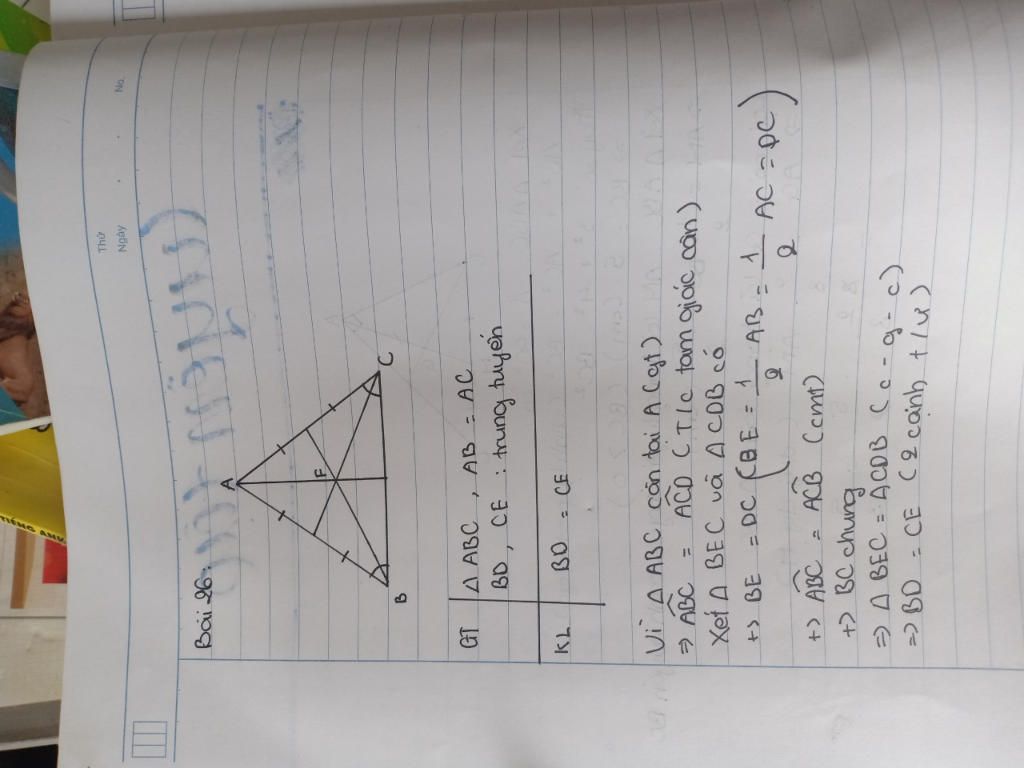 Thứ
Ngày
No.
TIẾNG ANH
Bài 26:
A
F
B
C
GT
Δ ABC , AB = AC
BD , CE : trung tuyến
KL
BD = CE
Vì Δ ABC cân tại A (gt)
=> ABC = ACD (T/c tam giác cân)
Xét Δ BEC và Δ CDB có
+> BE = DC (BE = 1/2 AB = 1/2 AC = DC)
+> ABC = ACB (cmt)
+> BC chung
=> Δ BEC = Δ CDB (c - g - c)
=> BD = CE (2 cạnh t/ư)